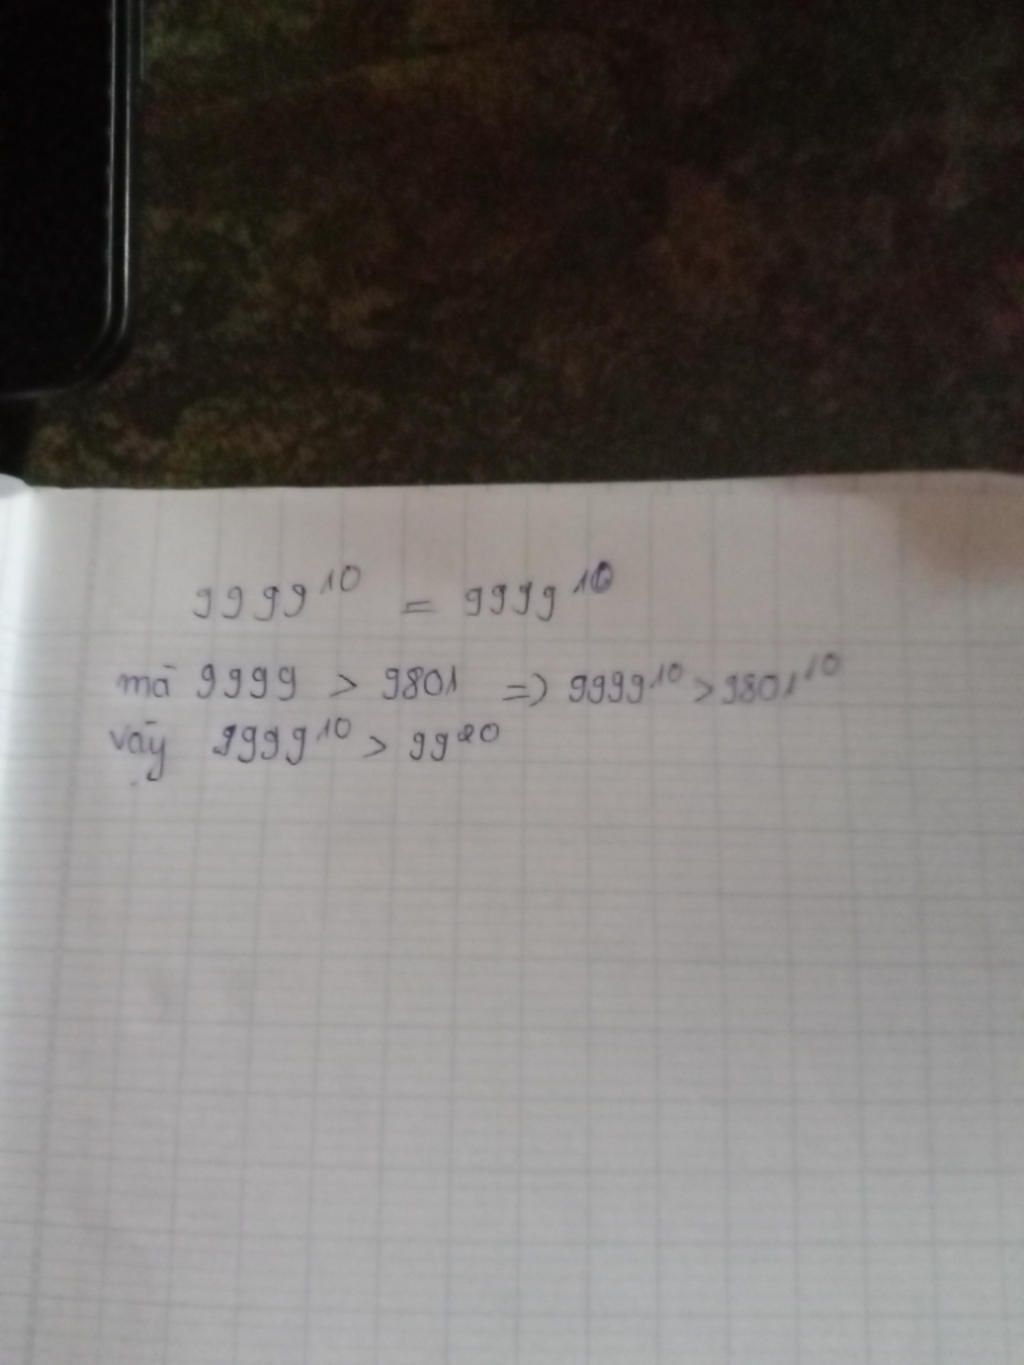 9999¹⁰ = 9999¹⁰
mà 9999 > 9801 => 9999¹⁰ > 9801¹⁰
vậy 9999¹⁰ > 99²⁰